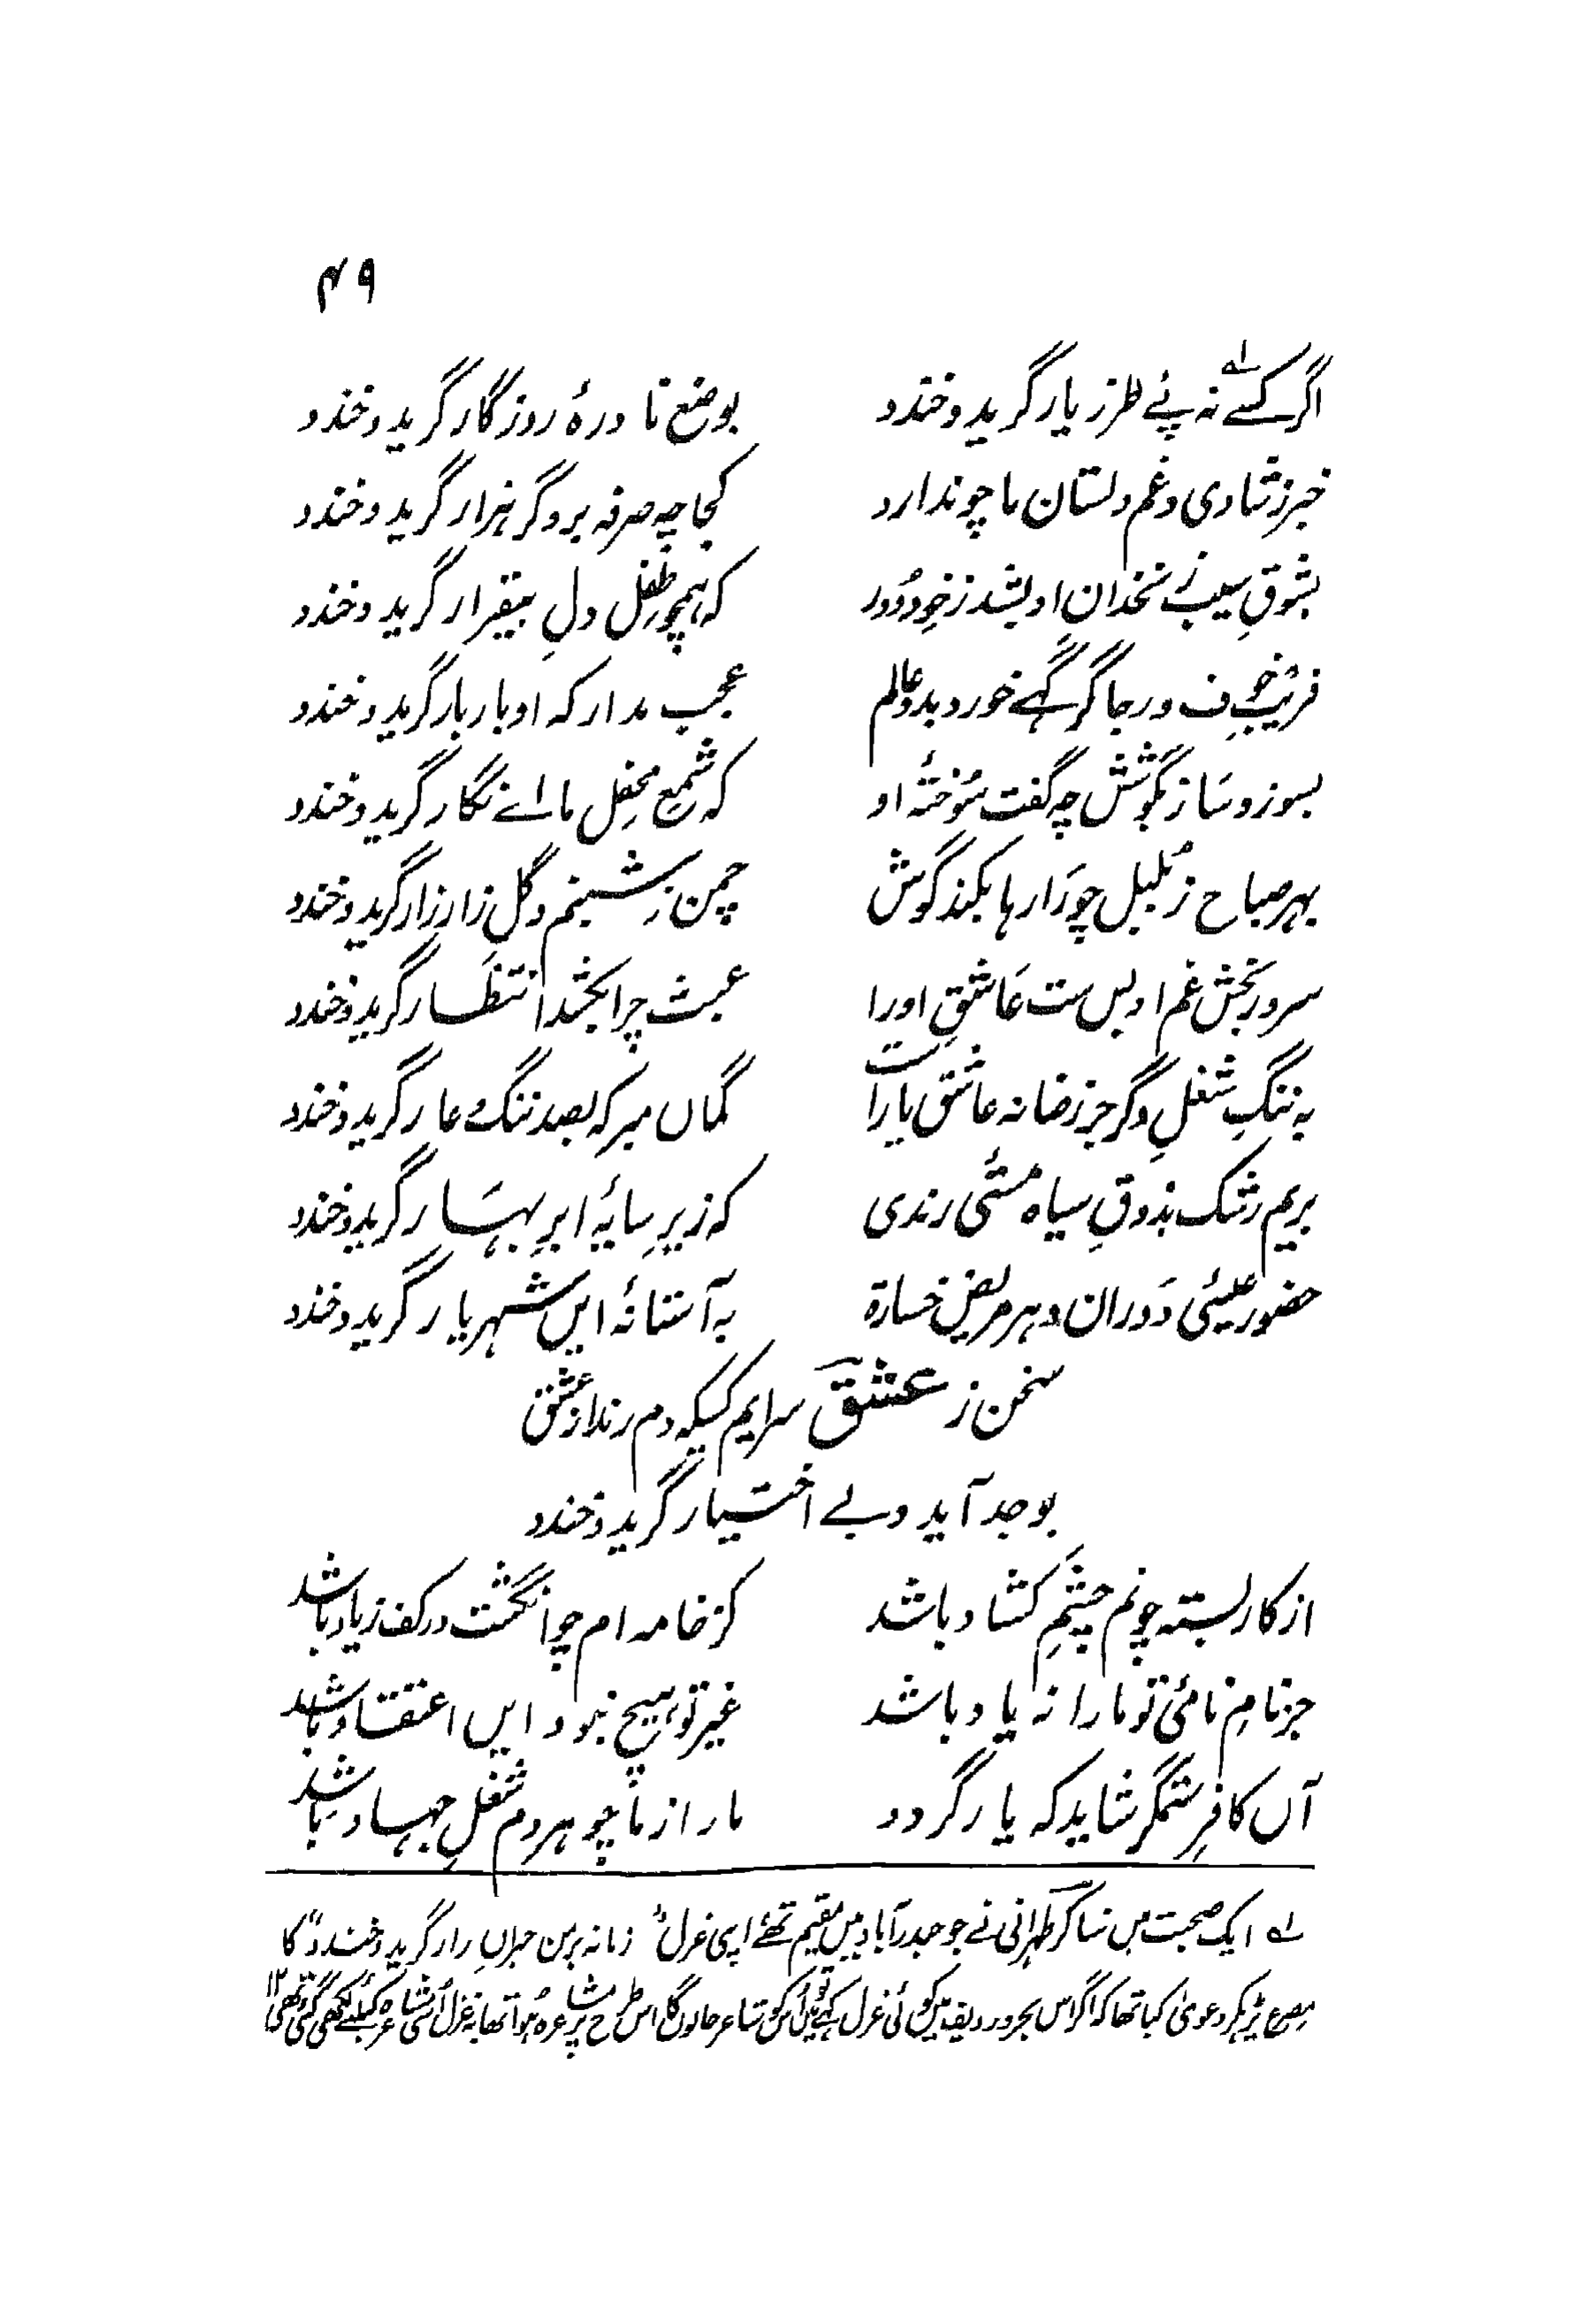 ۴۹
اگر کسے لہ نہ پئے طرز یار گرید و خندد بوضع نادرۂ روزگار گرید و خندد
خبر ز شادی و غم دلستان ما چو ندارد کجا چہ صرفہ برد گر ہزار گرید و خندد
بشوقِ سیب زنخدانِ او بشد ز خود دُور کہ ہمچو طفل دلِ بیقرار گرید و خندد
فریبِ خوف و رجا گر گہے خورد بدو عالم عجب مدار کہ او بار بار گرید و خندد
بسوز و ساز بگوشش چہ گفت سوختۂ او کہ شمعِ محفلِ ما اے نگار گرید و خندد
بہر صباح ز بُلبل چو زارہا بکند گوش چمن ز شبنم و گل زار زار گرید و خندد
سرور بخش غم او بس ست عاشقِ او را عبث چرا بکشد انتظار گرید و خندد
بہ ننگِ شغلِ دگر جز رضا نہ عاشق یار است گماں مبر کہ بصد ننگ و عار گرید و خندد
بریم رشک بذوقِ سیاہ مستیٔ رندی کہ زیرِ سایۂ ابرِ بہار گرید و خندد
حضور عیسیٰ دوران و ہر مریض خسارۃ بہ آستانۂ ایں شہریار گرید و خندد
سخن ز عشق سرایم کسیکہ دم زند از عشق
بوجد آید و بے اختیار گرید و خندد
از کار بستہ چونم چشمِ کشاد باشد کز خامہ ام چو انگشت در کف زیاد باشد
جز نامِ نامئ تو ما را نہ یاد باشد غیر تو ہیچ نبود ایں اعتقاد باشد
آں کافِر ستمگر شاید کہ یار گردد ما را ز ما چو ہر دم شغلِ جہاد باشد
لہ ایک صحبت میں شاکر طہرانی نے جو حیدرآباد میں مقیم تھے اپنی غزل "زمانہ بر من حیراں زار گرید و خندد" کا
مصرع پڑہکر دعویٰ کیا تھا کہ اگر اس بحر و ردیف میں کوئی غزل کہے تو میں اُس کو شاعر جانوں گا اس طرح پر مشاعرہ ہُوا تھا یہ غزل اُسی مشاعرہ کیلئے لکھی گئی تھی ۱۲